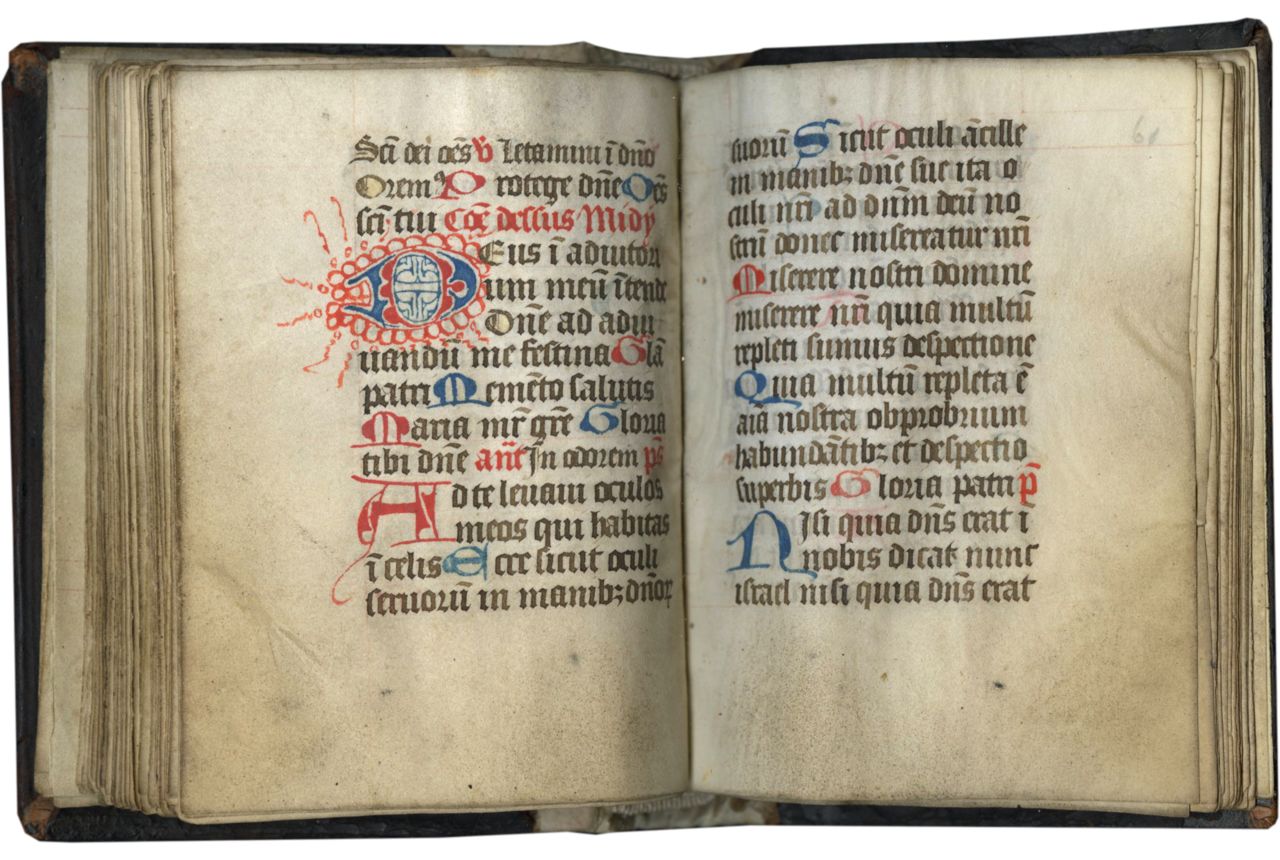 Scī dei oēs V̄ Letamini ī dn̄o
Oremꝰ Protege dn̄e Oēs
scī tui Coē dessus Midy
DEus ī adiutori
um meū ītende
Dn̄e ad adiu
uandū me festina Glā
patri Memēto salutis
Maria mr̄ gr̄e Gloria
tibi dn̄e añt In odorem ps̄
Ad te leuaui oculos
meos qui habitas
ī celis Ecce sicut oculi
seruorū in manibꝫ dn̄oꝝ
suorū Sicut oculi ācille
in manibꝫ dn̄e sue ita o
culi nr̄i ad dn̄m deū no
strū donec misereatur nr̄i
Miserere nostri domine
miserere nr̄i quia multū
repleti sumus despectione
Quia multū repleta ē
aīa nostra obprobrium
habundātibꝫ et despectio
superbis Gloria patri p̄
Nisi quia dn̄s erat ī
nobis dicat nunc
israel nisi quia dn̄s erat